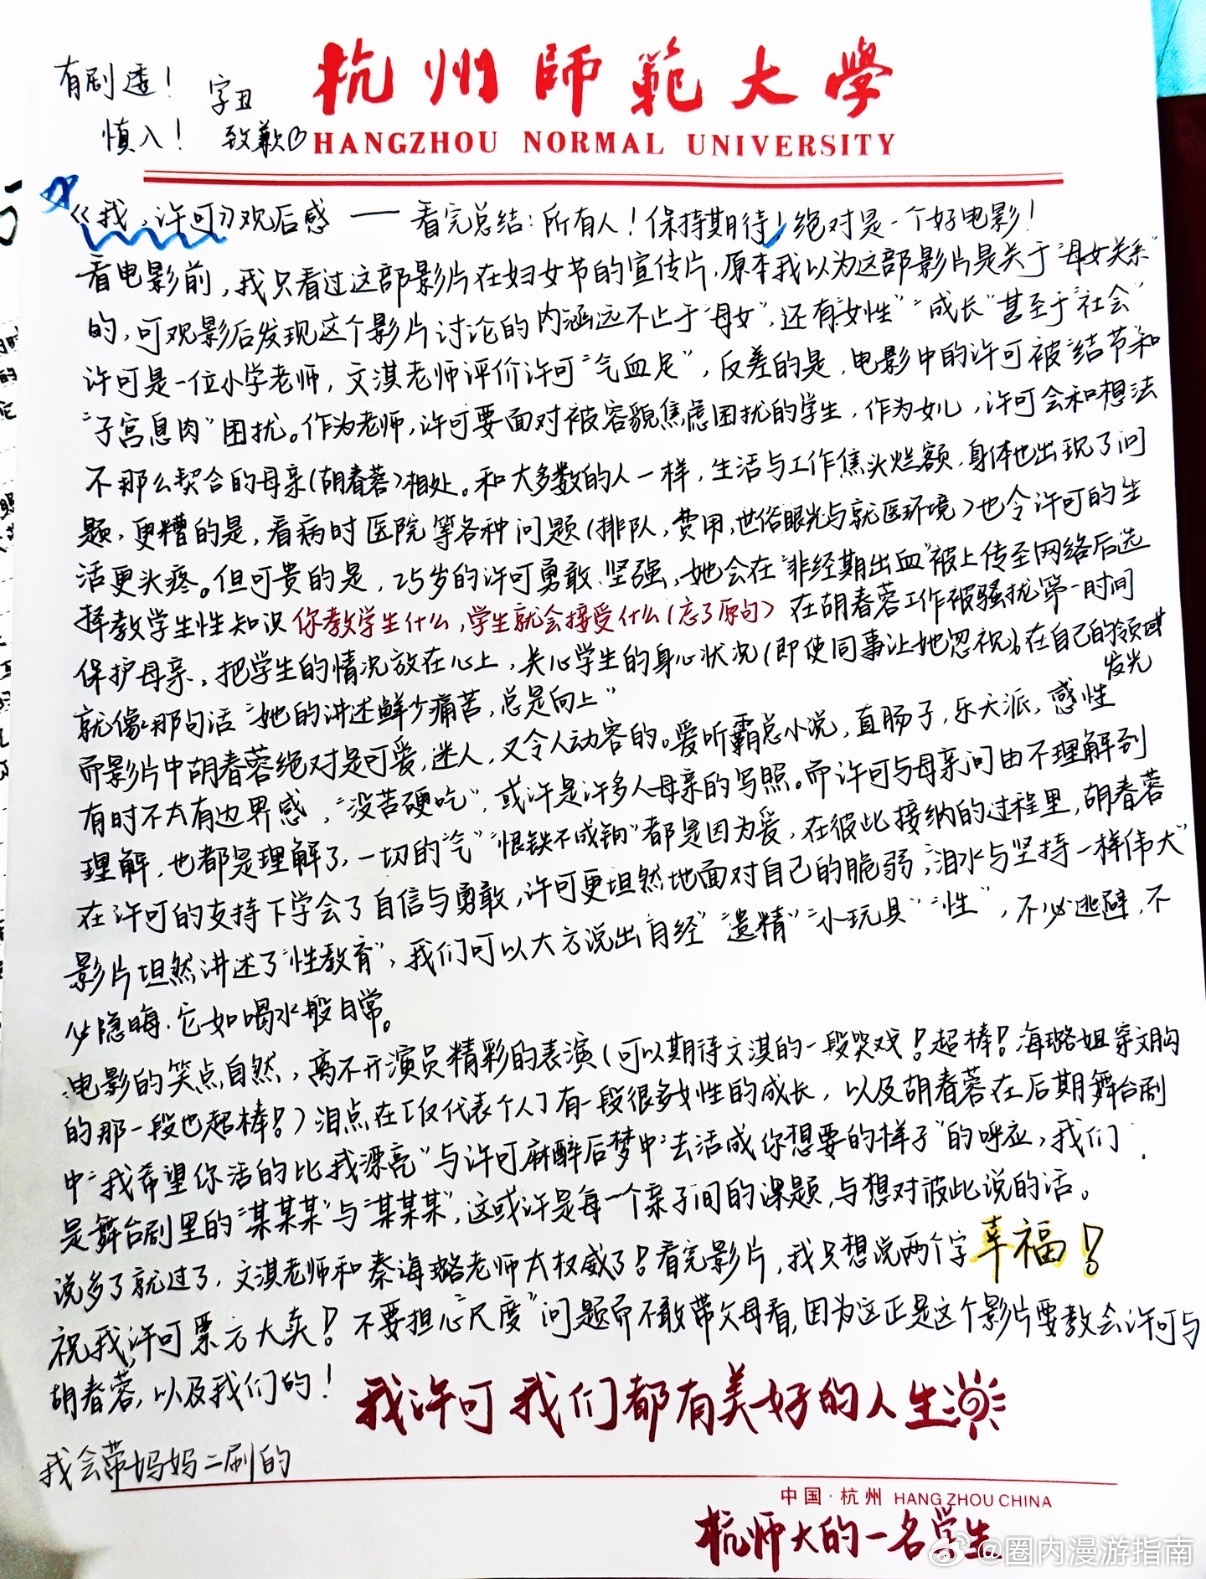 有剧透！ 字丑
慎入！ 致歉
杭州師範大學
HANGZHOU NORMAL UNIVERSITY
《我，许可》观后感 —— 看完总结：所有人！保持期待！绝对是一个好电影！
看电影前，我只看过这部影片在妇女节的宣传片，原本我以为这部影片是关于“母女关系”
的，可观影后发现这个影片讨论的内涵远不止于“母女”，还有“女性”“成长”甚至于“社会”
许可是一位小学老师，文淇老师评价许可“气血足”，反差的是，电影中的许可被“结节”和
“子宫息肉”困扰。作为老师，许可要面对被容貌焦虑困扰的学生，作为女儿，许可会和想法
不那么契合的母亲（胡春蓉）相处。和大多数的人一样，生活与工作焦头烂额，身体也出现了问
题，更糟的是，看病时医院等各种问题（排队，费用，世俗眼光与就医环境）也令许可的生
活更头疼。但可贵的是，25岁的许可勇敢、坚强，她会在“非经期出血”被上传至网络后选
择教学生性知识 你教学生什么，学生就会接受什么（忘了原句） 在胡春蓉工作被骚扰第一时间
保护母亲，把学生的情况放在心上，关心学生的身心状况（即使同事让她忽视），在自己的领域
发光
就像那句话“她的讲述鲜少痛苦，总是向上”
而影片中胡春蓉绝对是可爱，迷人，又令人动容的。爱听霸总小说，直肠子，乐天派，感性
有时不太有边界感，“没苦硬吃”，或许是许多人母亲的写照。而许可与母亲间由不理解到
理解，也都是理解了，一切的“气”“恨铁不成钢”都是因为爱，在彼此接纳的过程里，胡春蓉
在许可的支持下学会了自信与勇敢，许可更坦然地面对自己的脆弱；“泪水与坚持一样伟大”
影片坦然讲述了“性教育”，我们可以大方说出“月经”“遗精”“小玩具”“性”，不必逃避，不
必隐晦，它如喝水般日常。
电影的笑点自然，离不开演员精彩的表演（可以期待文淇的一段哭戏！超棒！海璐姐穿文胸
的那一段也超棒！）泪点在「仅代表个人」有一段很多女性的成长，以及胡春蓉在后期舞台剧
中“我希望你活的比我漂亮”与许可麻醉后梦中“去活成你想要的样子”的呼应，我们
是舞台剧里的“某某某”与“某某某”，这或许是每一个亲子间的课题，与想对彼此说的话。
说多了就过了，文淇老师和秦海璐老师太权威了！看完影片，我只想说两个字 幸福！
祝我，许可票房大卖！不要担心“尺度”问题而不敢带父母看，因为这正是这个影片要教会许可与
胡春蓉，以及我们的！
我许可 我们都有美好的人生
我会带妈妈二刷的
中国·杭州 HANG ZHOU CHINA
杭师大的一名学生
@圈内漫游指南